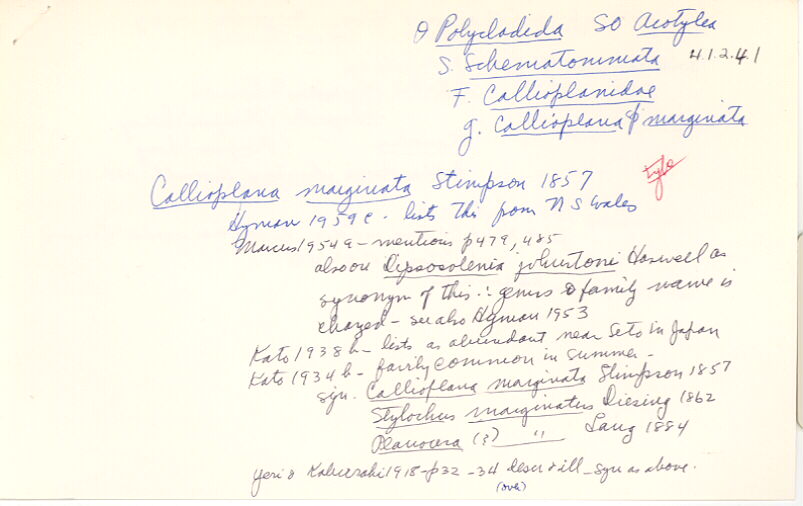 O Polycladida SO Acotylea
S. Schematommata 4.1.2.4.1
F. Callioplanidae
g. Callioplana marginata
type
Callioplana marginata Stimpson 1857
Hyman 1959e - lists this from N S Wales
Marcus 1954a - mentions p479, 485
also Dipsosolenia johnstoni Haswell as
synonym of this ∴ genus & family name is
changed - see also Hyman 1953
Kato 1938b - lists as abundant near Seto in Japan
Kato 1934b - fairly common in summer -
syn. Callioplana marginata Stimpson 1857
Stylochus marginatus Diesing 1862
Planocera (?) " Lang 1884
Yeri & Kaburaki 1918 - p32 - 34 descr & ill - syn as above.
(over)